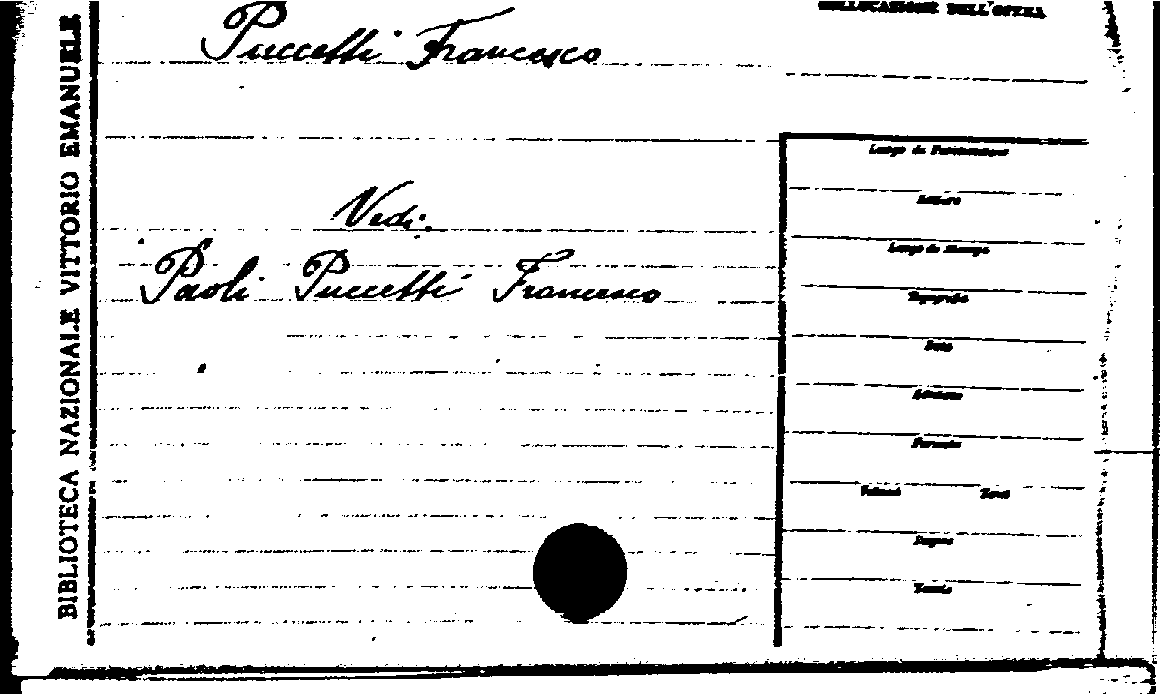 COLLOCAZIONE DELL'OPERA
Puccetti Francesco
Vedi:
Paoli Puccetti Francesco
BIBLIOTECA NAZIONALE VITTORIO EMANUELE
Luogo di Pubblicazione
Editore
Luogo di Stampa
Tipografia
Data
Edizione
Formato
Volumi
Tomi
Pagine
Tavole